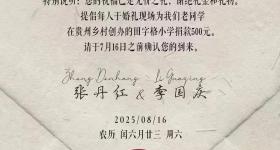 特别说明：您的祝福已是无价之礼，谢绝礼金和礼物。
提倡每人于婚礼现场为我们老同学
在贵州乡村创办的田字格小学捐款500元。
请于7月16日之前确认您的到来。
Zhang Danhong Li Guoqing
张丹红 & 李国庆
2025/08/16
农历 闰六月廿三 周六